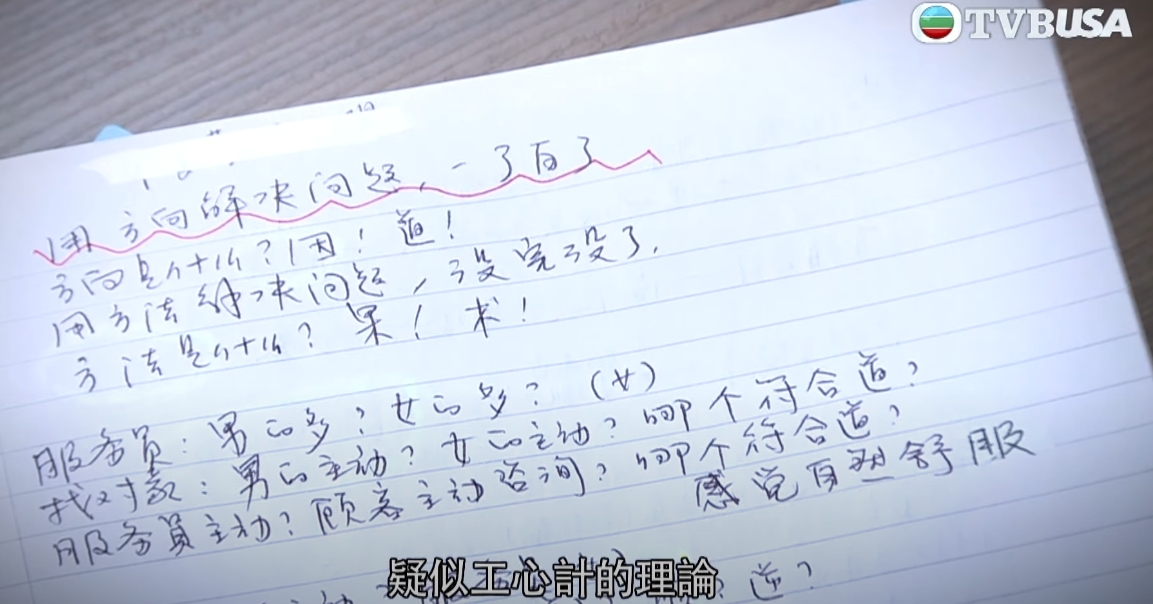 TVBUSA
用方向解决问题，一了百了
方向是什么？因！道！
用方法解决问题，没完没了.
方法是什么？果！术！
服务员：男的多？女的多？（女）
找对象：男的主动？女的主动？哪个符合道？
服务員主动？顾客主动咨询？哪个符合道？
感觉自然舒服
疑似工心計的理論
道？